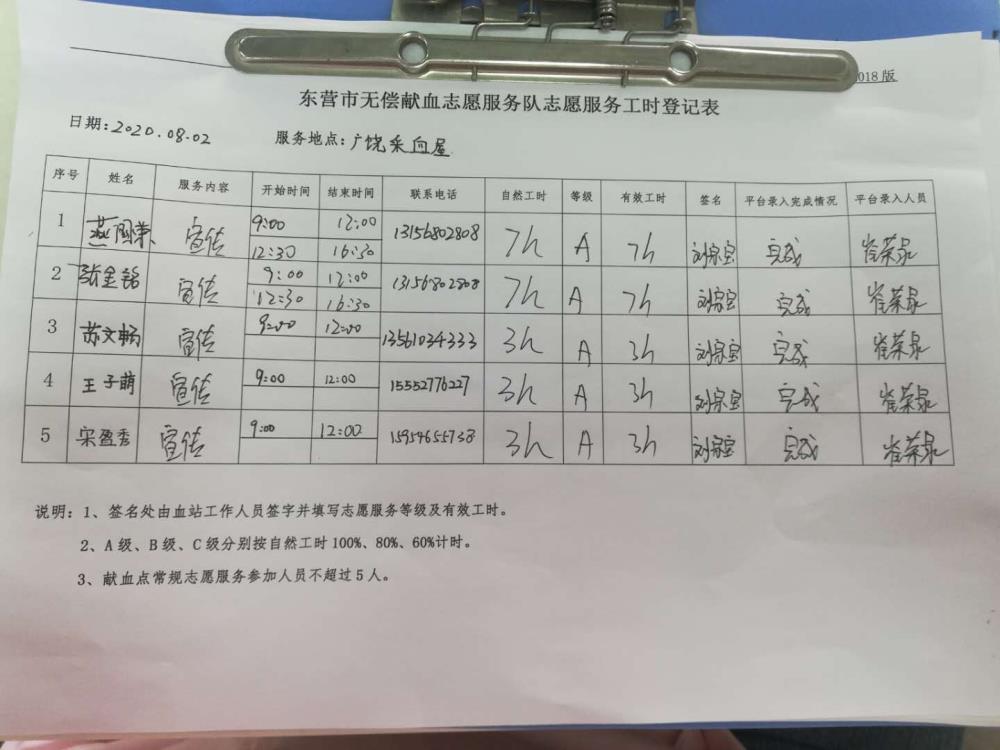 018版
东营市无偿献血志愿服务队志愿服务工时登记表
日期:2020.08.02 服务地点:广饶采血屋
序号 姓名 服务内容 开始时间 结束时间 联系电话 自然工时 等级 有效工时 签名 平台录入完成情况 平台录入人员
1 宣传 9:00 12:00 13156802808 7h A 7h 刘宗宝 完成 崔荣泉
12:30 16:30
2 张金铭 宣传 9:00 12:00 13156802808 7h A 7h 刘宗宝 完成 崔荣泉
12:30 16:30
3 苏文畅 宣传 9:00 12:00 13561034333 3h A 3h 刘宗宝 完成 崔荣泉
4 王子萌 宣传 9:00 12:00 15552776227 3h A 3h 刘宗宝 完成 崔荣泉
5 宋盈秀 宣传 9:00 12:00 15954655738 3h A 3h 刘宗宝 完成 崔荣泉
说明:1、签名处由血站工作人员签字并填写志愿服务等级及有效工时。
2、A级、B级、C级分别按自然工时100%、80%、60%计时。
3、献血点常规志愿服务参加人员不超过5人。